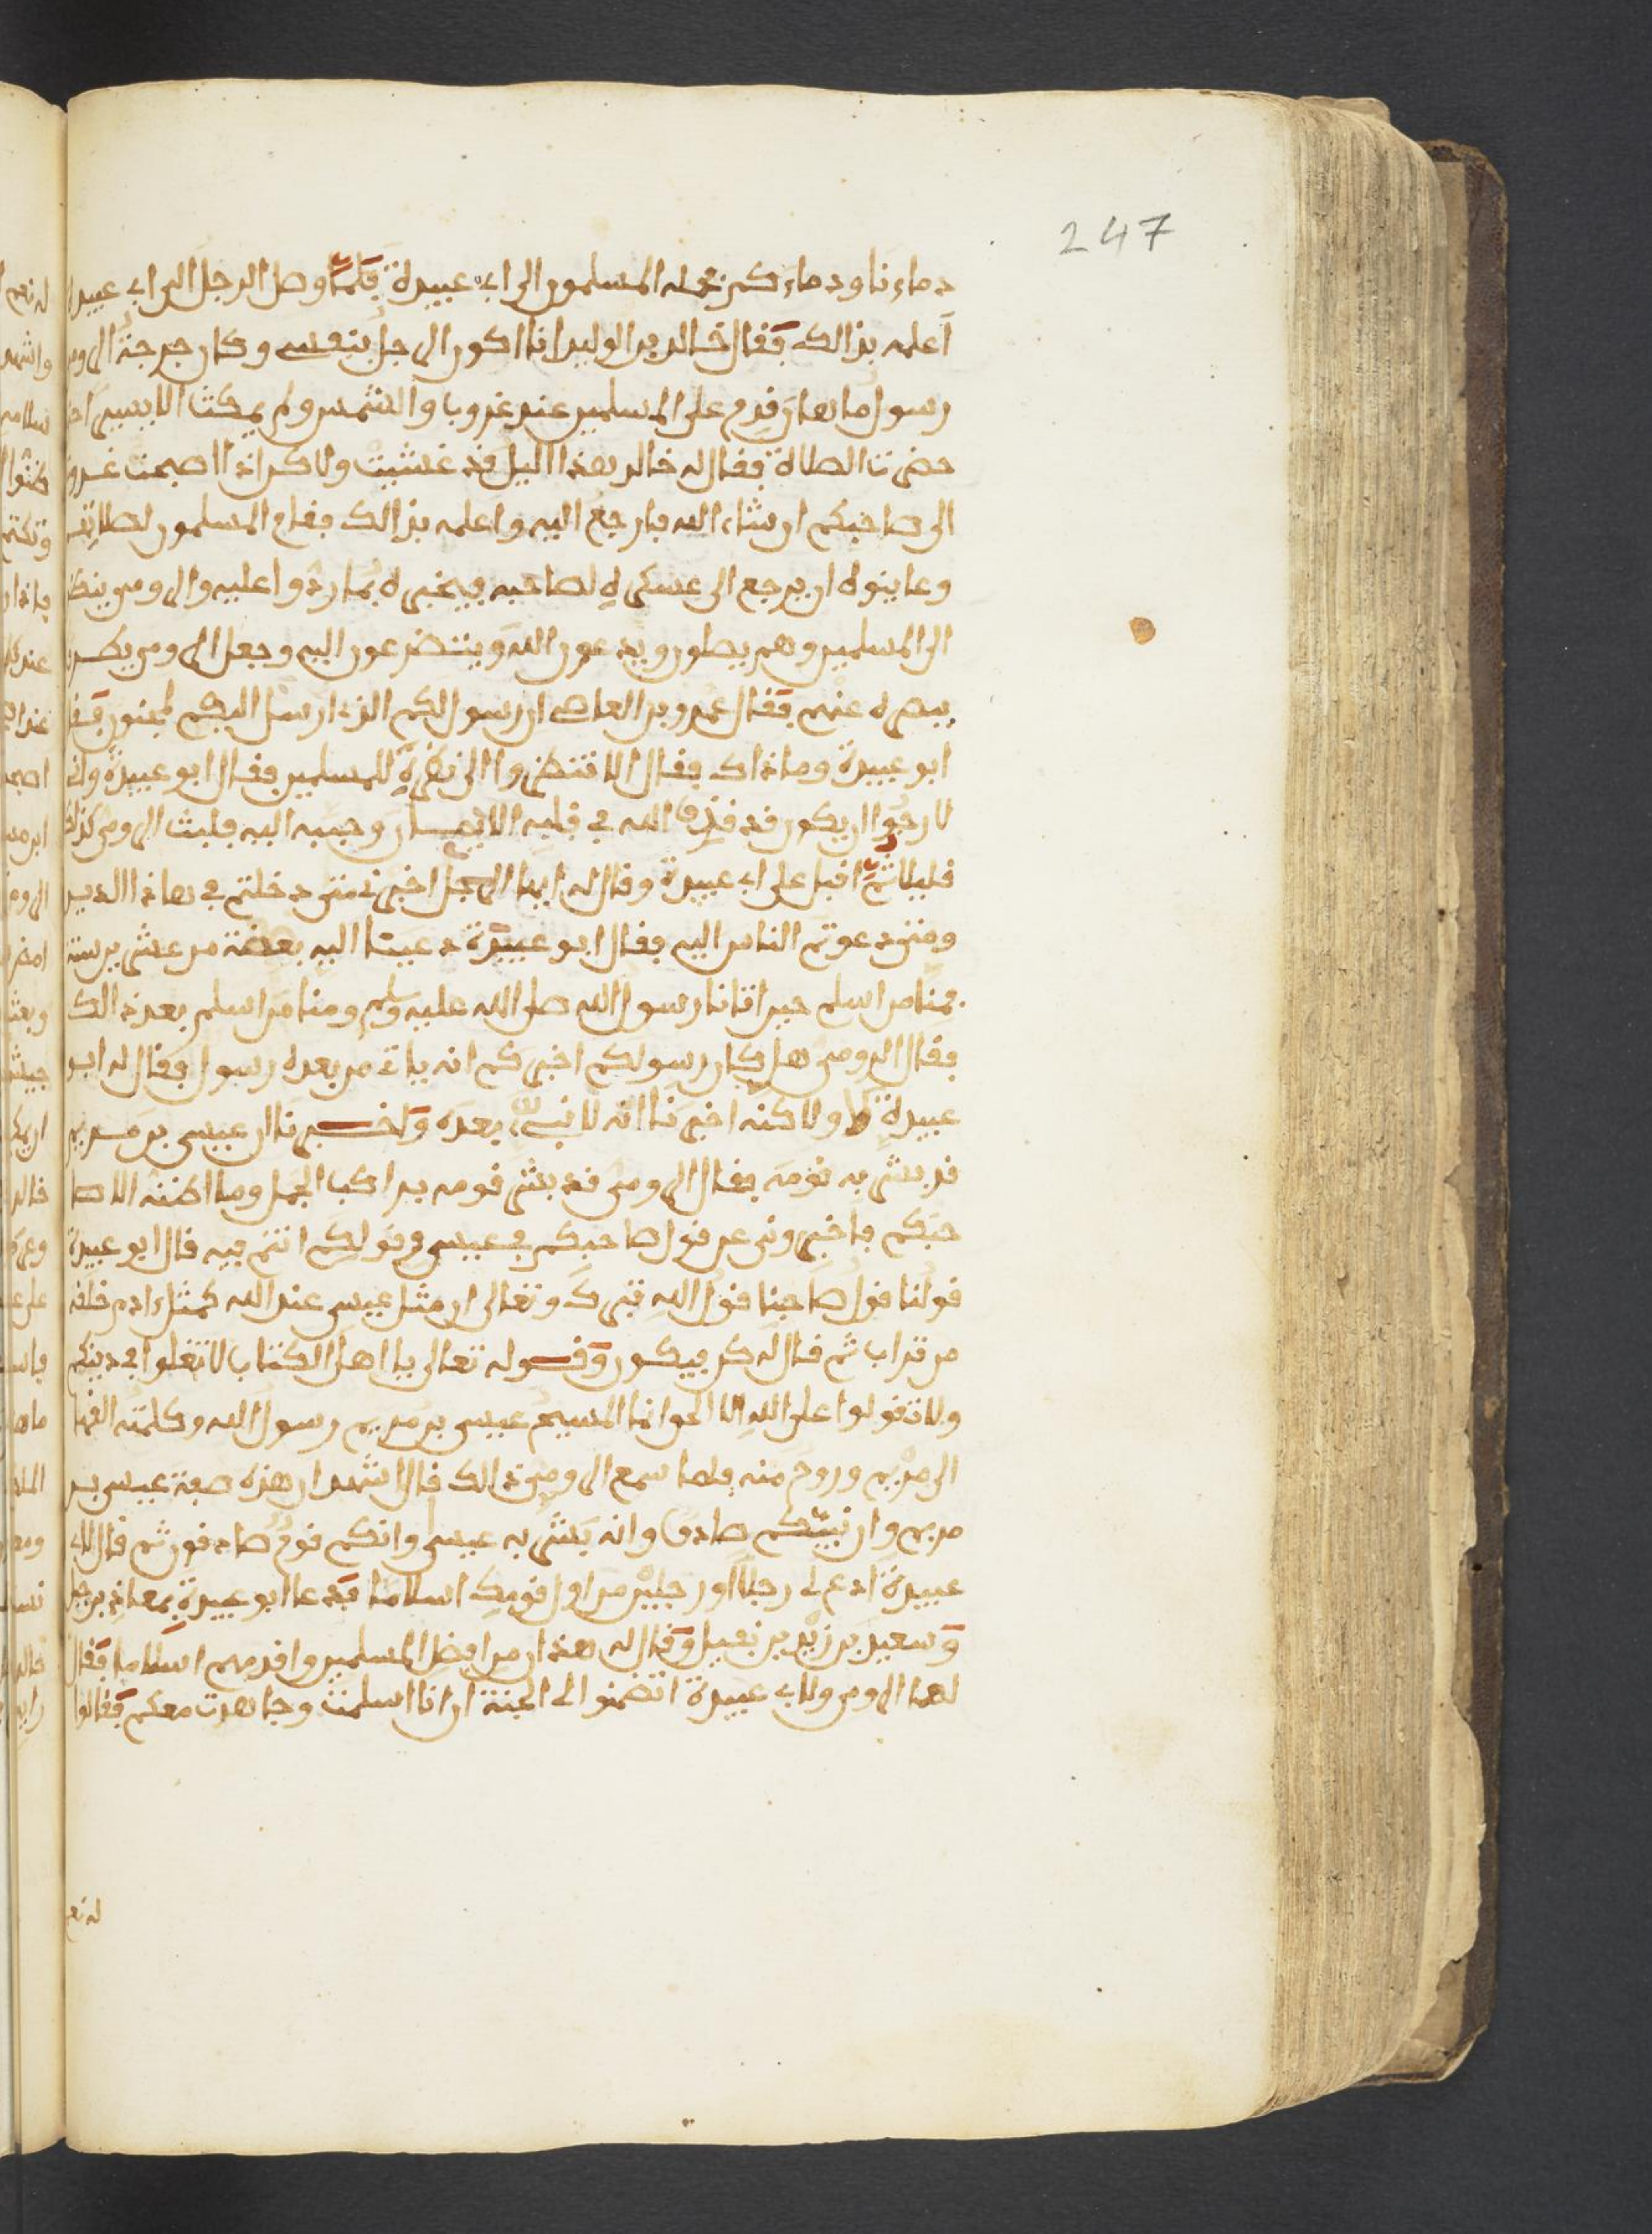 247
دماءنا ودماءكم فحمله المسلمون الى ابي عبيدة فلما وصل الرجل الى ابي عبيدة
اعلمه بذالك فقال خالد بن الوليد انا اكون الرجل بنفسي وكان جرجة الرومي
رسول ماهان قدم على المسلمين عند غروب الشمس ولم يمكث الا يسيرا حتى
حضرت الصلاة فقال له خالد هذا اليل قد غشيت ولاكن اذا اصبحت غدوت
الى صاحبكم ان شاء الله فارجع اليه واعلمه بذالك فقام المسلمون لصلاتهم
وعاينوه ان يرجع الى عسكره لصاحبه فيخبره بما ردوا عليه والرومي ينظر
الى المسلمين وهم يصلون ويدعون الله ويتضرعون اليه وجعل الرومي يصرف
بصره عنهم فقال عمرو بن العاصي ان رسولكم الذي ارسل اليكم لمجنون فقال
ابو عبيدة وما ذاك فقال الا تنظروا الى نظره للمسلمين فقال ابو عبيدة واني
لارجوا ان يكون قد قذف الله في قلبه الايمان وحببه اليه فلبث الرومي كذالك
قليلا ثم اقبل على ابي عبيدة وقال له ايها الرجل اخبرني متى دخلتم في هاذا الدين
ومتى دعوتم الناس اليه فقال ابو عبيدة دعينا اليه بضعة من عشرين سنة
فمنا من اسلم حين اتانا رسول الله صلى الله عليه وسلم ومنا من اسلم بعد ذالك
فقال الرومي هل كان رسولكم اخبركم انه ياتي من بعده رسول فقال له ابو
عبيدة لا ولاكنه اخبرنا انه لا نبي بعده واخبرنا ان عيسى بن مريم
قد بشر به قومه فقال الرومي قد بشر قومه براكب الجمل وما اظنه الا صا
حبكم فاخبروني عن قول صاحبكم في عيسى وقولكم انتم فيه قال ابو عبيدة
قولنا قول صاحبنا قول الله تبرك وتعالى ان مثل عيسى عند الله كمثل ادم خلقه
من تراب ثم قال له كن فيكون وقوله تعالى يا اهل الكتاب لا تغلوا في دينكم
ولا تقولوا على الله الا الحق انما المسيح عيسى بن مريم رسول الله وكلمته القها
الى مريم وروح منه فلما سمع الرومي ذالك قال اشهد ان هذه صفة عيسى بن
مريم وان نبيكم صادق وانه بشر به عيسى وانكم قوم صادقون ثم قال لابي
عبيدة ادع لي رجلا او رجلين من اول قومك اسلاما فدعا ابو عبيدة بمعاذ بن جبل
وسعيد بن زيد بن نفيل وقال له هذان من افضل المسلمين واقدمهم اسلاما فقال
لهما الرومي ولابي عبيدة اتضمنوا لي الجنة ان انا اسلمت وجاهدت معكم فقالوا
له نعم